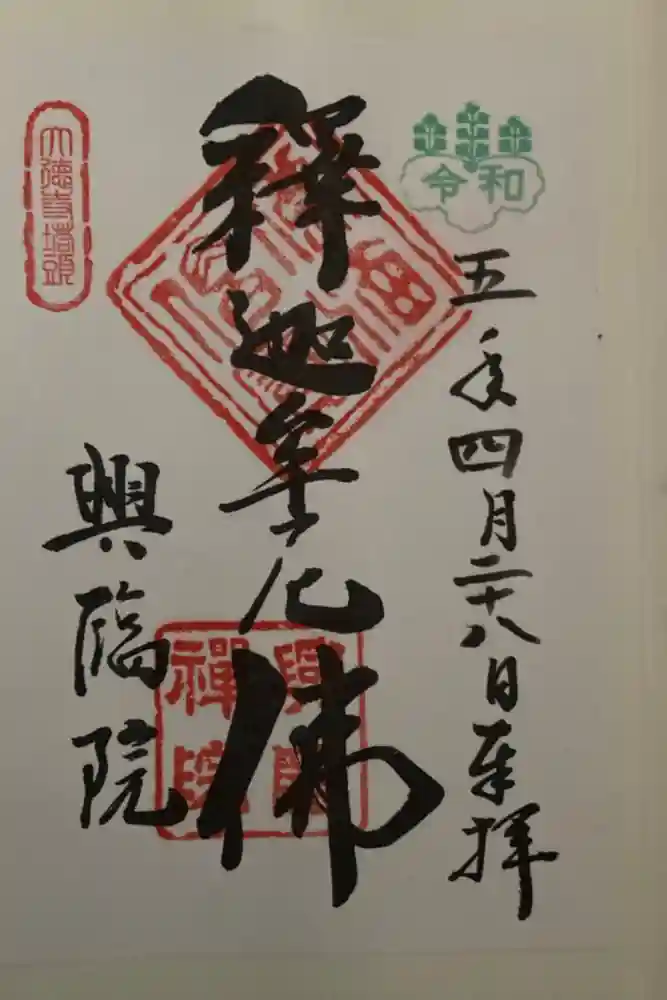 令和
五年四月二十八日奉拝
釋迦牟尼佛
興臨院
大徳寺塔頭